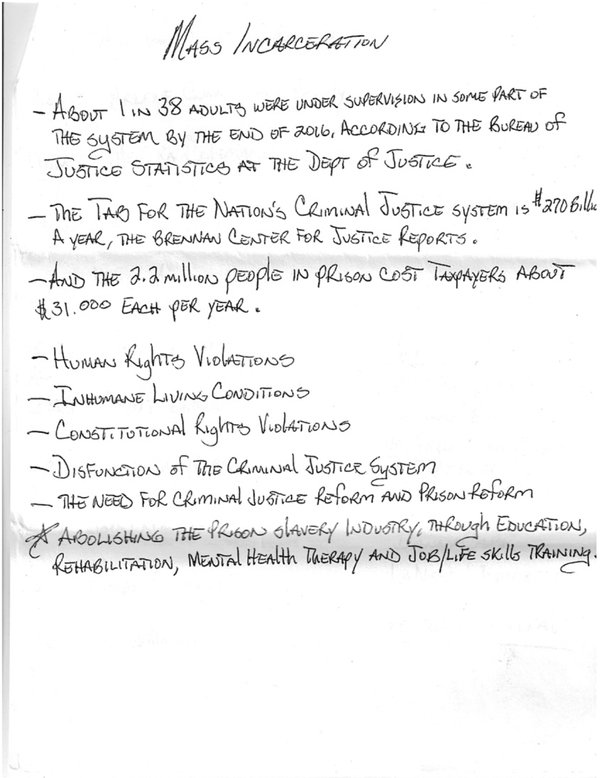 Mass Incarceration
- About 1 in 38 adults were under supervision in some part of
the system by the end of 2016, according to the Bureau of
Justice Statistics at the Dept of Justice.
- The Tab for the Nation's Criminal Justice system is $270 Billi
a year, the Brennan Center for Justice Reports.
- And the 2.2 million people in prison cost Taxpayers about
$31.000 Each per year.
- Human Rights Violations
- Inhumane Living Conditions
- Constitutional Rights Violations
- Disfunction of the Criminal Justice System
- The need for criminal justice reform and prison reform
☆ Abolishing the Prison Slavery Industry, through Education,
Rehabilitation, Mental Health Therapy and Job/Life skills Training.